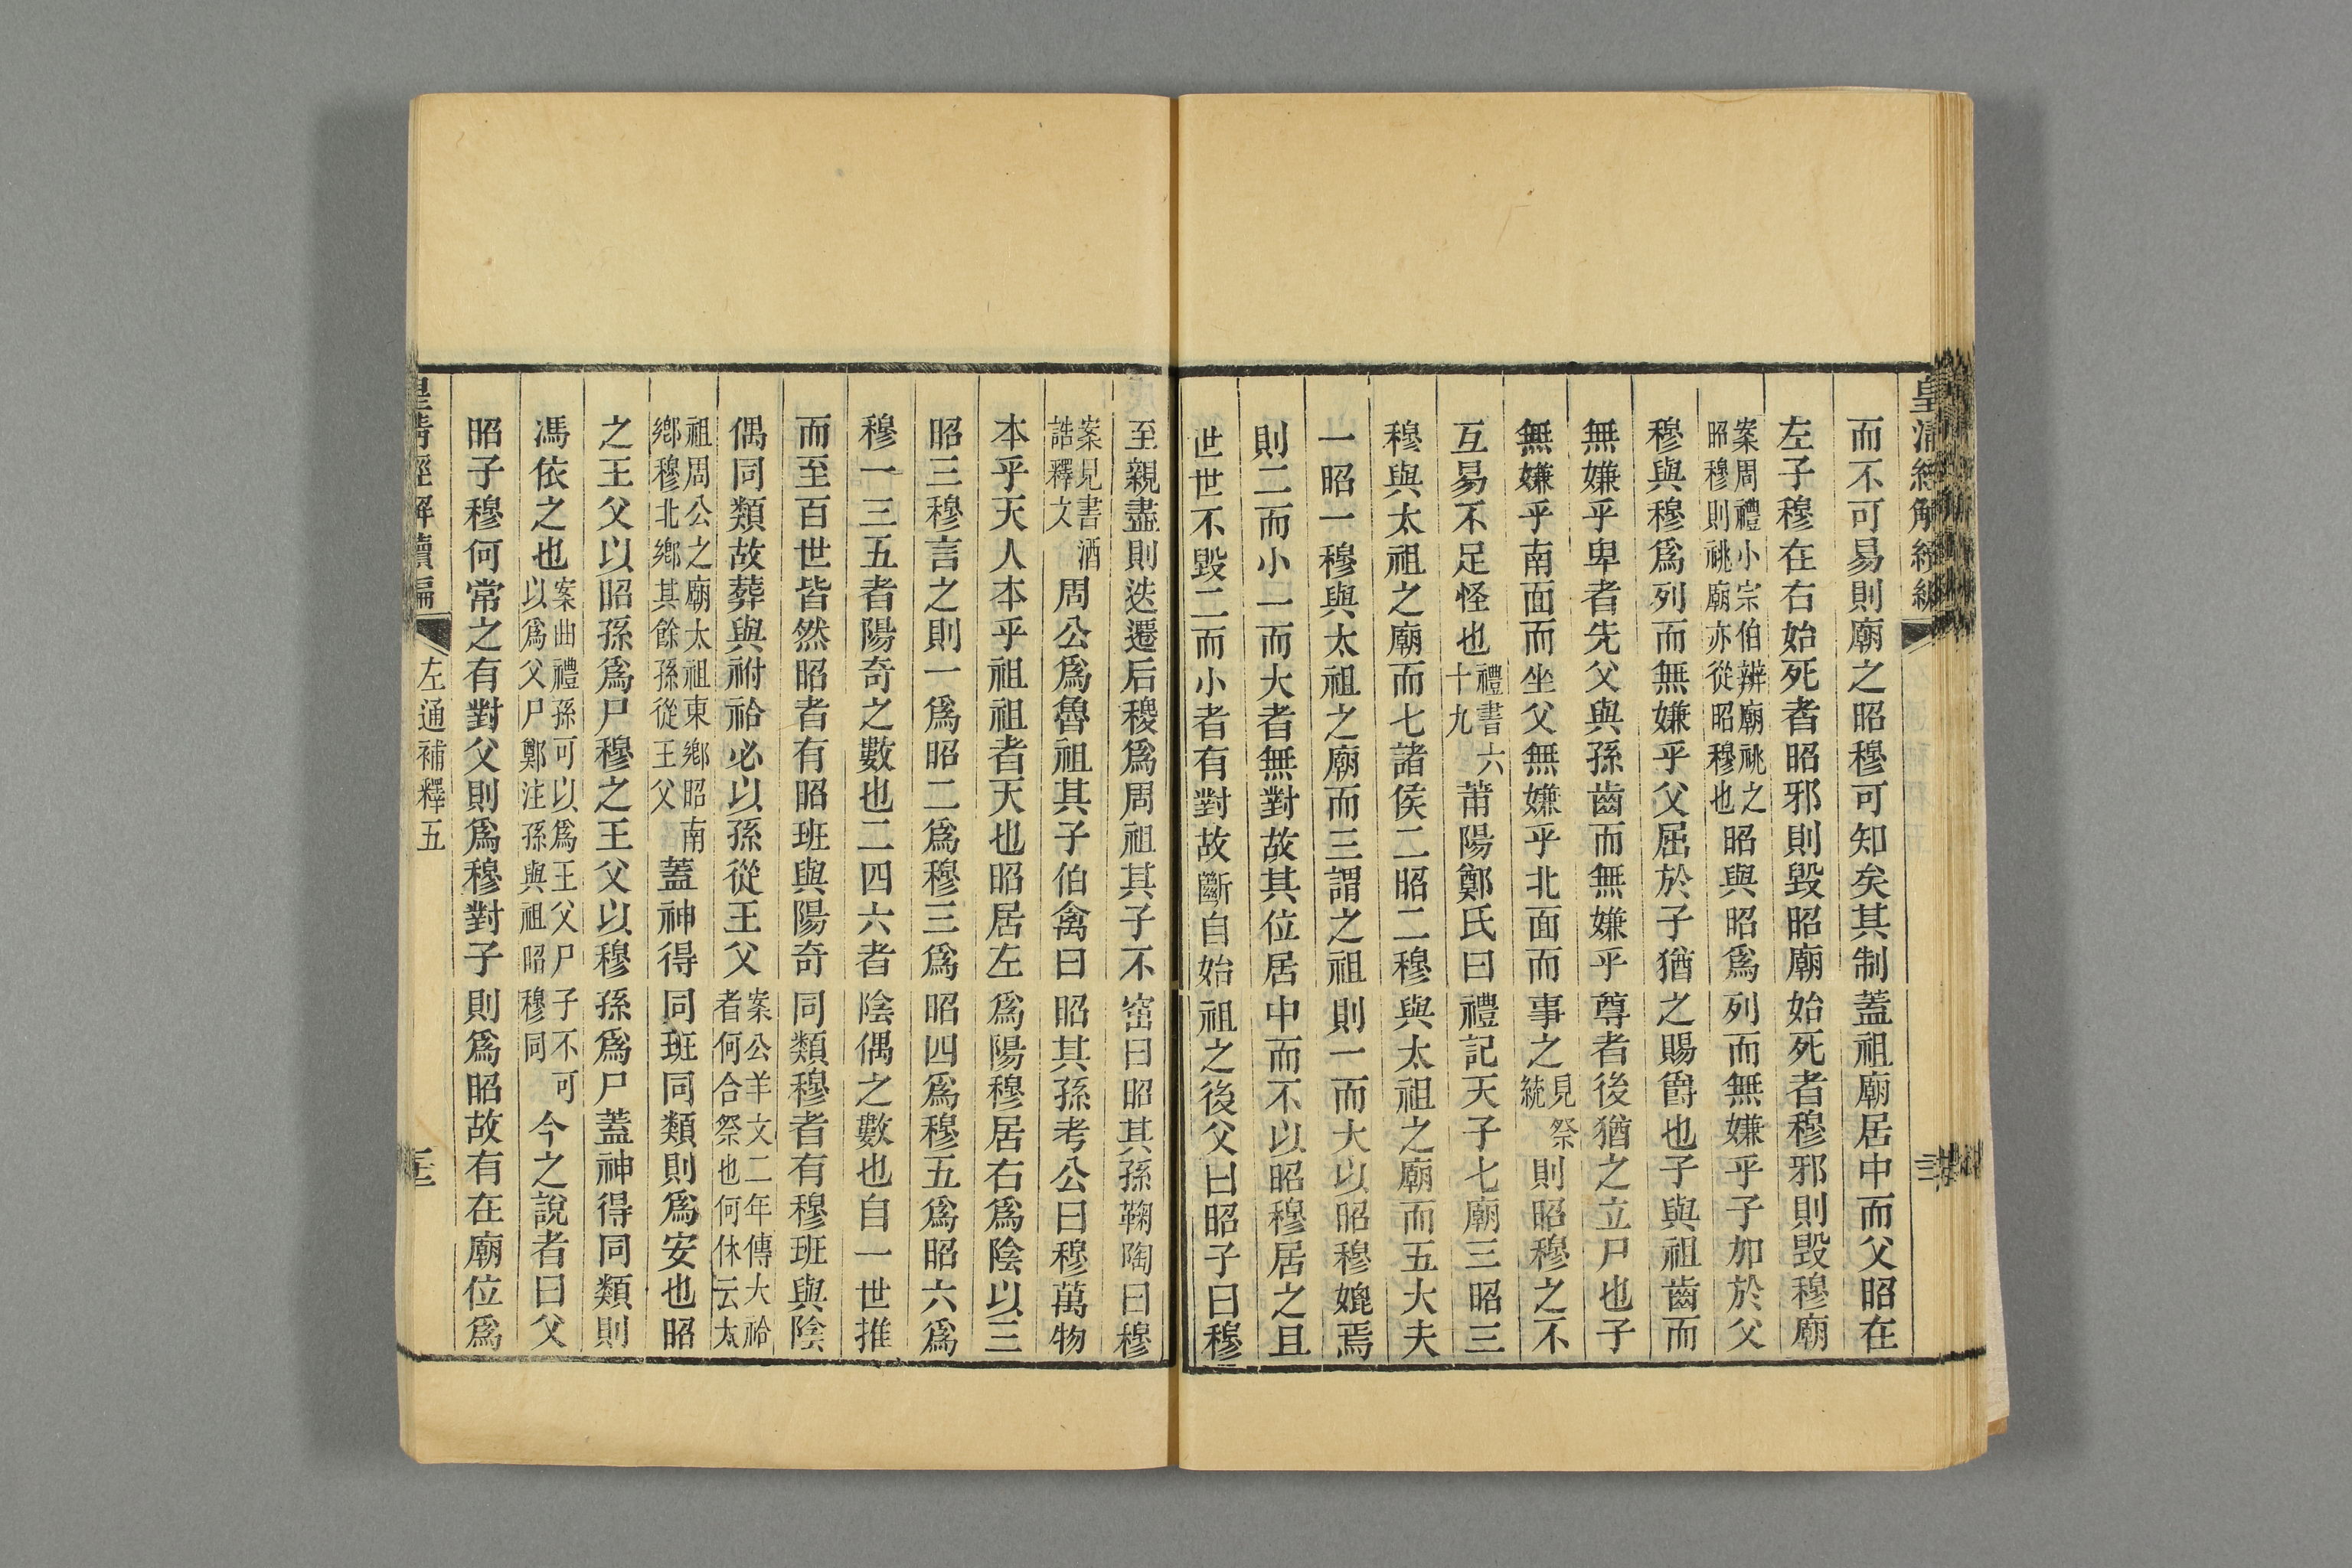 而不可易則廟之昭穆可知矣其制蓋祖廟居中而父昭在
左子穆在右始死者昭邪則毀昭廟始死者穆邪則毀穆廟
案周禮小宗伯辨廟祧之
昭穆則祧廟亦從昭穆也
昭與昭爲列而無嫌乎子加於父
穆與穆爲列而無嫌乎父屈於子猶之賜爵也子與祖齒而
無嫌乎卑者先父與孫齒而無嫌乎尊者後猶之立尸也子
無嫌乎南面而坐父無嫌乎北面而事之
見祭
統
則昭穆之不
互易不足怪也
禮書六
十九
莆陽鄭氏曰禮記天子七廟三昭三
穆與太祖之廟而七諸侯二昭二穆與太祖之廟而五大夫
一昭一穆與太祖之廟而三謂之祖則一而大以昭穆媲焉
則二而小一而大者無對故其位居中而不以昭穆居之且
世世不毀二而小者有對故斷自始祖之後父曰昭子曰穆
至親盡則迭遷后稷爲周祖其子不窋曰昭其孫鞠陶曰穆
案見書酒
誥釋文
周公爲魯祖其子伯禽曰昭其孫考公曰穆萬物
本乎天人本乎祖祖者天也昭居左爲陽穆居右爲陰以三
昭三穆言之則一爲昭二爲穆三爲昭四爲穆五爲昭六爲
穆一三五者陽奇之數也二四六者陰偶之數也自一世推
而至百世皆然昭者有昭班與陽奇同類穆者有穆班與陰
偶同類故葬與祔祫必以孫從王父
案公羊文二年傳大祫
者何合祭也何休云太
祖周公之廟太祖東鄉昭南
鄉穆北鄉其餘孫從王父
蓋神得同班同類則爲安也昭
之王父以昭孫爲尸穆之王父以穆孫爲尸蓋神得同類則
馮依之也
案曲禮孫可以爲王父尸子不可
以爲父尸鄭注孫與祖昭穆同
今之說者曰父
昭子穆何常之有對父則爲穆對子則爲昭故有在廟位爲
左通補釋五